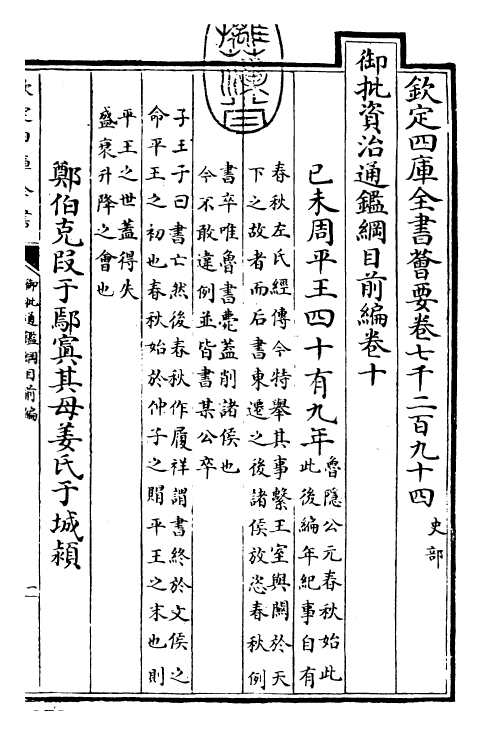 欽定四庫全書薈要卷七千二百九十四 史部
御批資治通鑑綱目前編卷十
已未周平王四十有九年
魯隱公元春秋始此
此後編年紀事自有
春秋左氏經傳今特舉其事繫王室與關於天
下之故者而后書東遷之後諸侯放恣春秋例
書卒唯魯書薨蓋削諸侯也
今不敢違例並皆書某公卒
子王子曰書亡然後春秋作履祥謂書終於文侯之
命平王之初也春秋始於仲子之賵平王之末也則
平王之世蓋得失
盛衰升降之會也
鄭伯克段于鄢寘其母姜氏于城潁
御批通鑑綱目前編
一